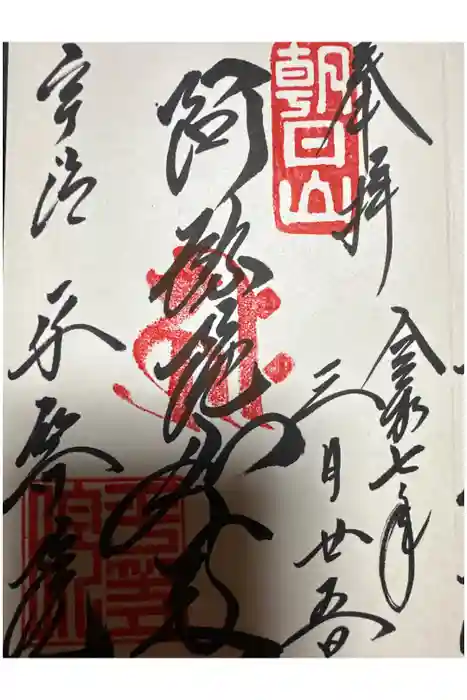 奉拝
令和七年
三月廿五日
朝日山
阿弥陀如来
宇治 平等院